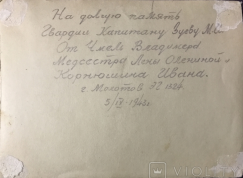 На долгую память
Гвардии Капитану Зуеву М.И.
От Члом Владимера
Медсестры Лены Олениной и
Корнюшина Ивана.
г. Молотов ЭГ 1824
5/IX-1943г.
VIOLITY